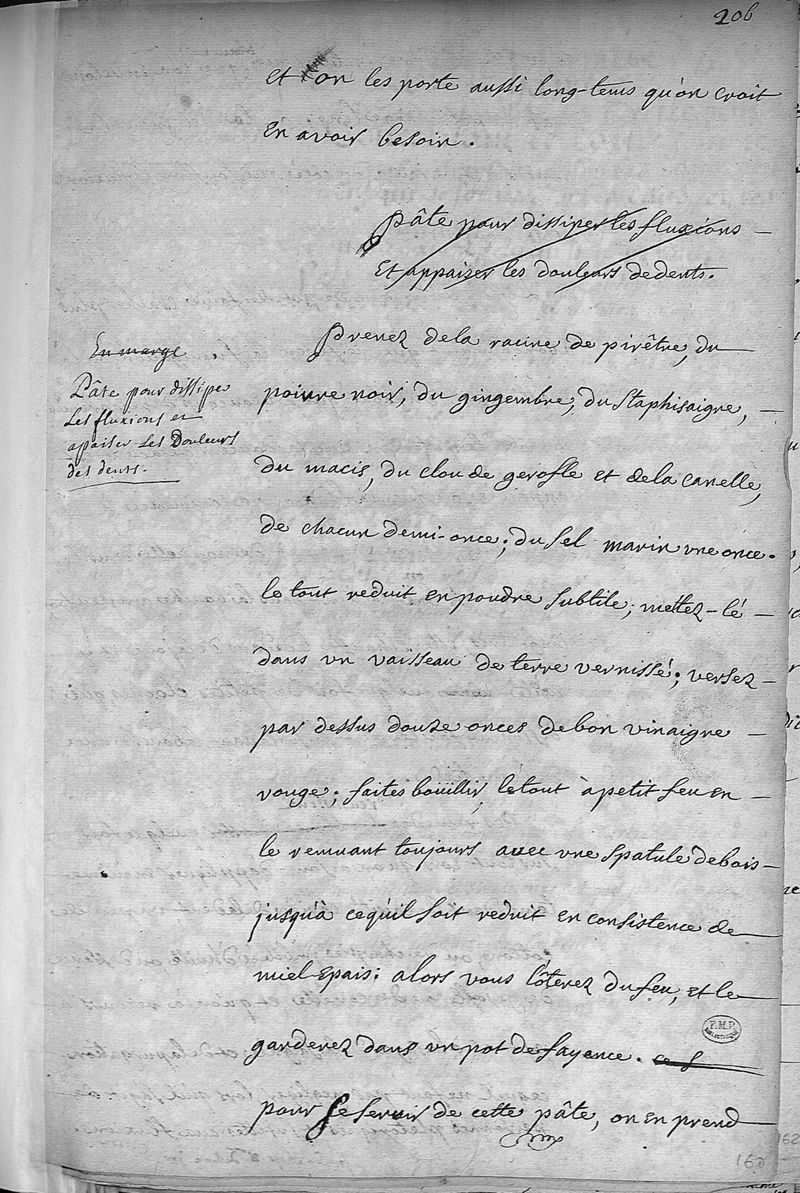 206
et l'on les porte aussi long-tems qu'on croit
En avoir besoin.
pâte pour dissiper les fluxions
Et appaiser les douleurs de dents.
En marge
Pâte pour dissiper
les fluxions et
apaiser les Douleurs
des dents.
Prenez de la racine de pirêtre, du
poivre noir, du gingembre, du staphisaigre,
du macis, du clou de gerofle et de la canelle,
de chacun demi-once; du sel marin une once.
le tout reduit en poudre subtile; mettez-lé
dans un vaisseau de terre vernissé; versez
par dessus douze onces de bon vinaigre
rouge; faites boüillir le tout à petit feu en
le remuant toujours avec une spatule de bois
jusqu'à ce qu'il soit reduit en consistence de
miel Epais: alors vous l'ôterez du feu, et le
garderez dans un pot de fayence. ce s
pour se servir de cette pâte, on en prend
F.M.P.
BIBLIOTHEQUE
160
162